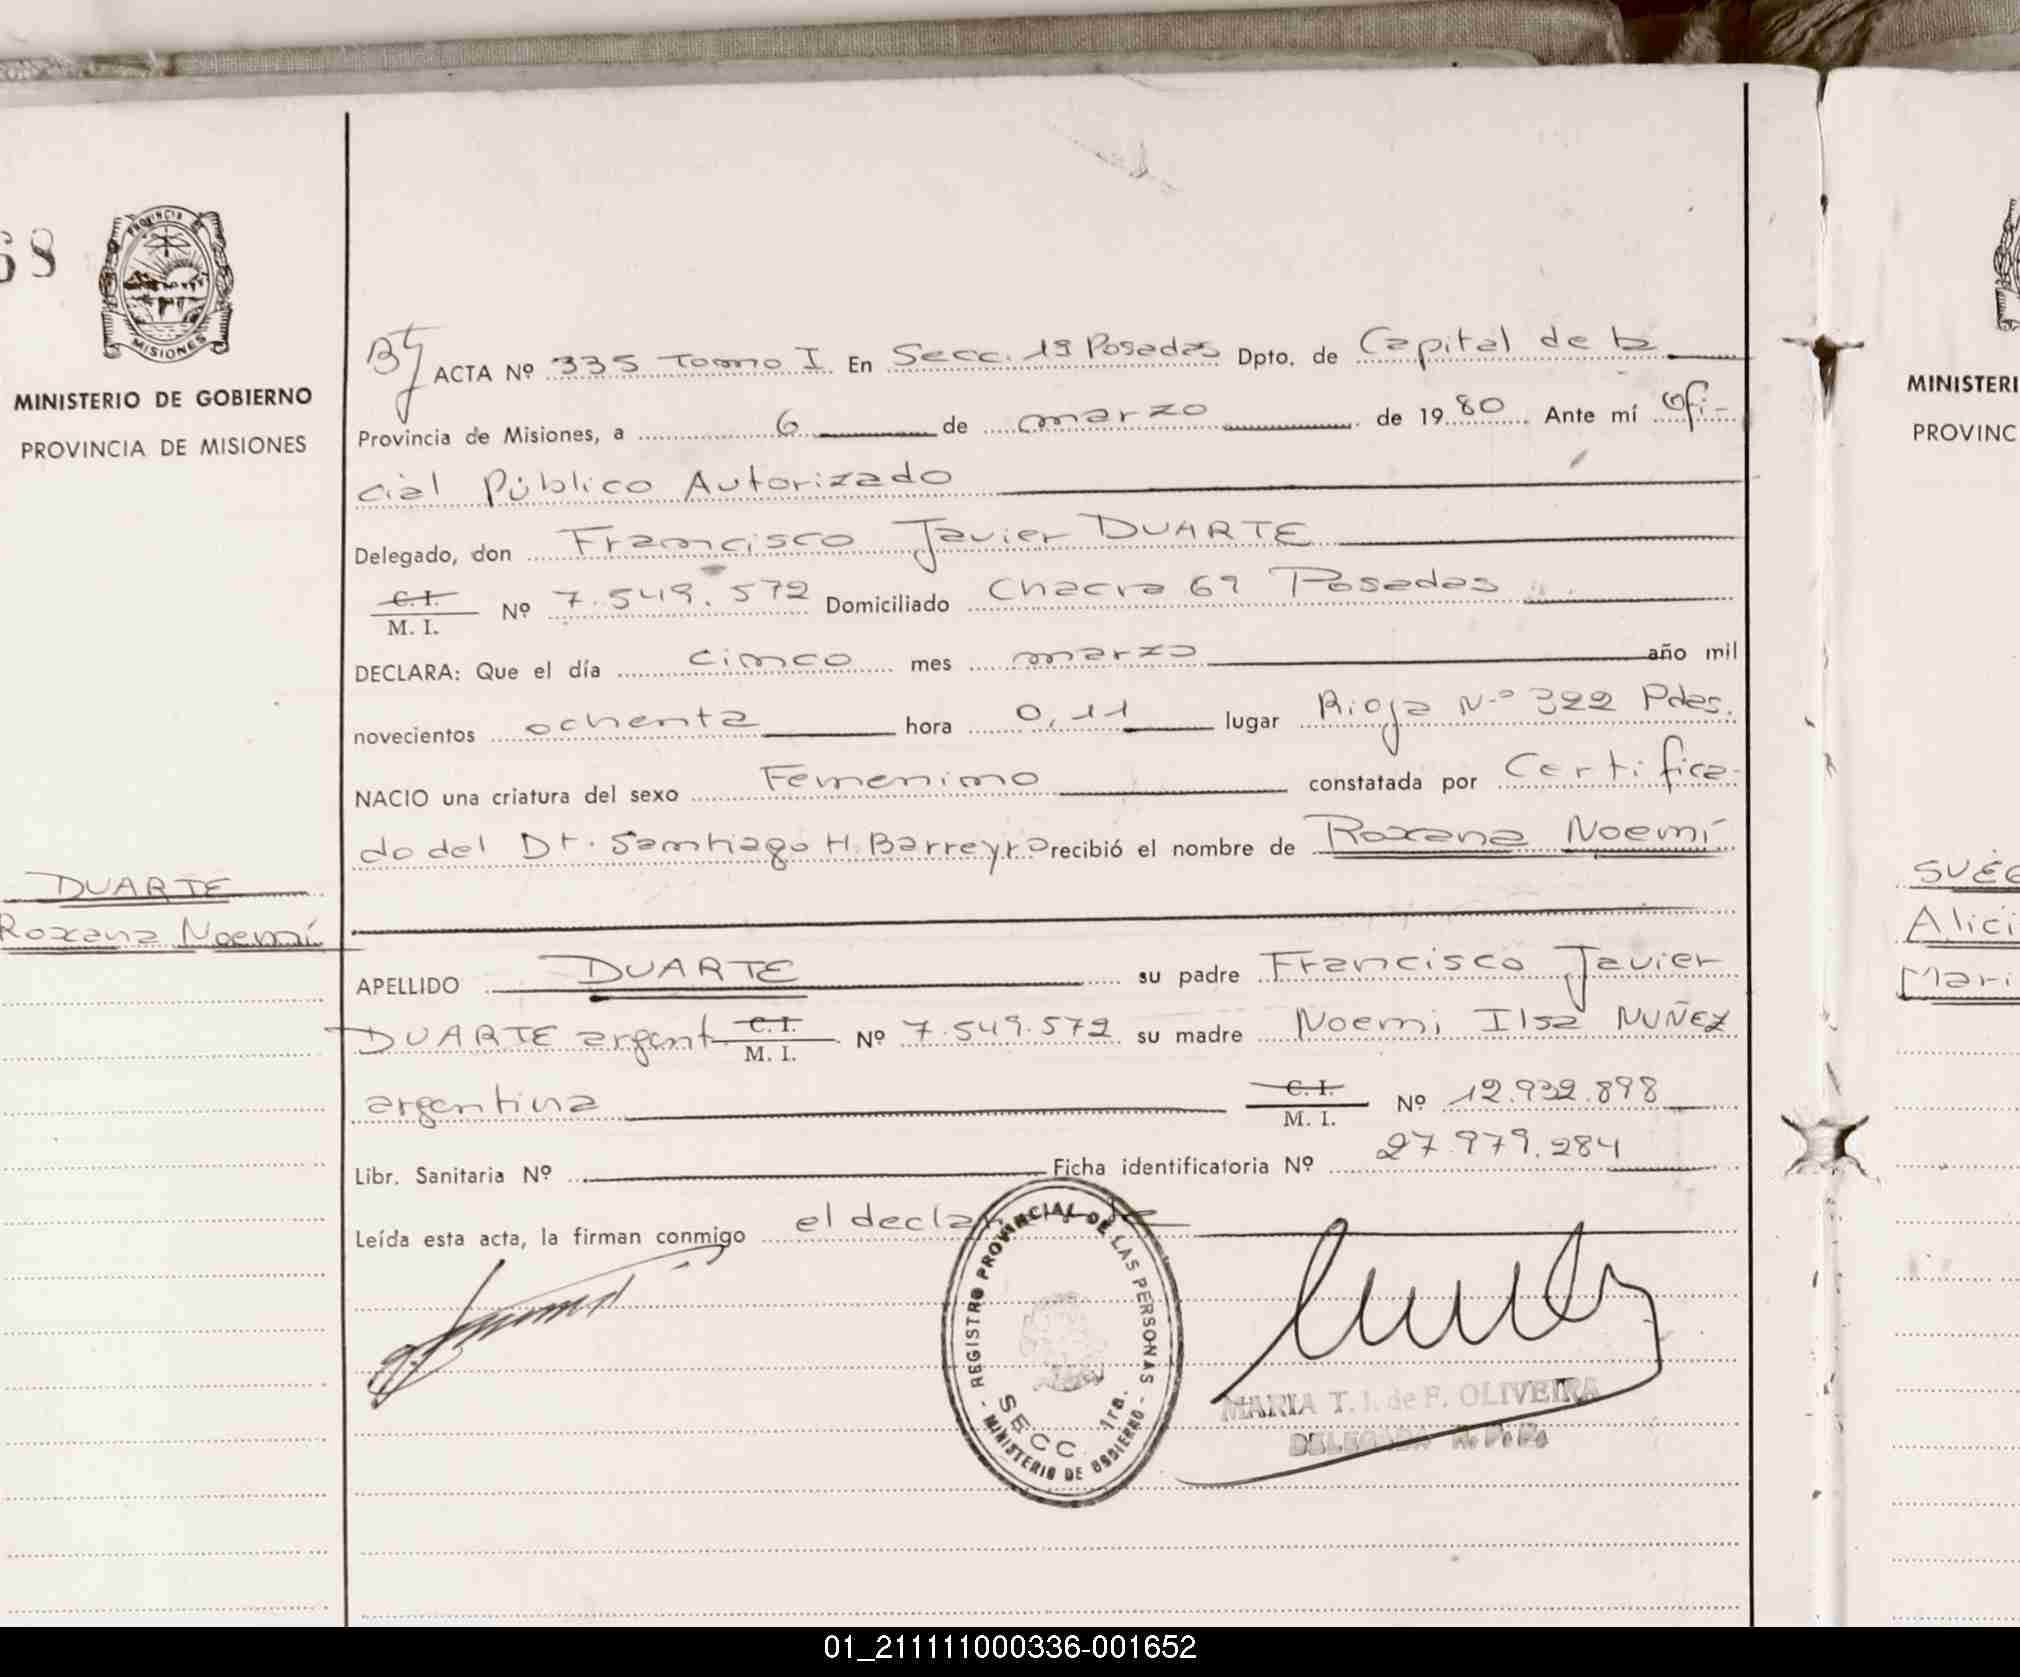 68
PROVINCIA DE
MISIONES
MINISTERIO DE GOBIERNO
PROVINCIA DE MISIONES
DUARTE
Roxana Noemí
ACTA Nº 335 Tomo I En Secc. 1ª Posadas Dpto. de Capital de la
Provincia de Misiones, a 6 de marzo de 1980 Ante mí Ofi-
cial Público Autorizado
Delegado, don Francisco Javier DUARTE
C. I.
M. I. Nº 7.549.572 Domiciliado Chacra 69 Posadas
DECLARA: Que el día cinco mes marzo año mil
novecientos ochenta hora 0,11 lugar Rioja Nº 322 Pdas.
NACIO una criatura del sexo Femenino constatada por Certifica-
do del Dr. Santiago H. Barreyro recibió el nombre de Roxana Noemí
APELLIDO DUARTE su padre Francisco Javier
DUARTE argent C. I.
M. I. Nº 7.549.572 su madre Noemi Ilsa NUÑEZ
argentina C. I.
M. I. Nº 12.932.898
Libr. Sanitaria Nº Ficha identificatoria Nº 27.979.284
Leída esta acta, la firman conmigo el declarante
REGISTRO PROVINCIAL DE LAS PERSONAS
SECC. 1ra.
MINISTERIO DE GOBIERNO
MARIA T. I. de F. OLIVEIRA
DELEGADA R. P. P.
MINISTERI
PROVINC
Alici
Mari
01_211111000336-001652